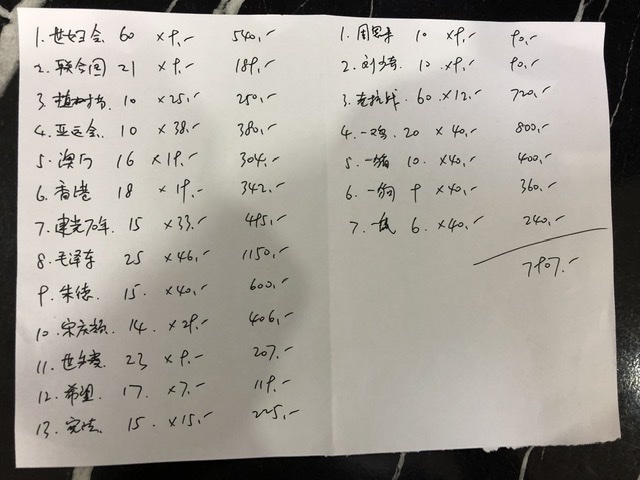 1. 世妇会 60 ×9.- 540.-
2. 联合国 21 ×9.- 189.-
3. 植树节 10 ×25.- 250.-
4. 亚运会 10 ×38.- 380.-
5. 澳门 16 ×19.- 304.-
6. 香港 18 ×19.- 342.-
7. 建党70年 15 ×33.- 495.-
8. 毛泽东 25 ×46.- 1150.-
9. 朱德. 15. ×40.- 600.-
10. 宋庆龄. 14. ×29.- 406.-
11. 世乒赛 23 ×9.- 207.-
12. 希望. 17. ×7.- 119.-
13. 宪法. 15 ×15.- 225.-
1. 周恩来 10 ×9.- 90.-
2. 刘少奇 10. ×9.- 90.-
3. 老抗战 60 ×12.- 720.-
4. 一鸡 20 ×40.- 800.-
5. 一猪 10. ×40.- 400.-
6. 一狗 9 ×40.- 360.-
7. 6. ×40.- 240.-
7907.-